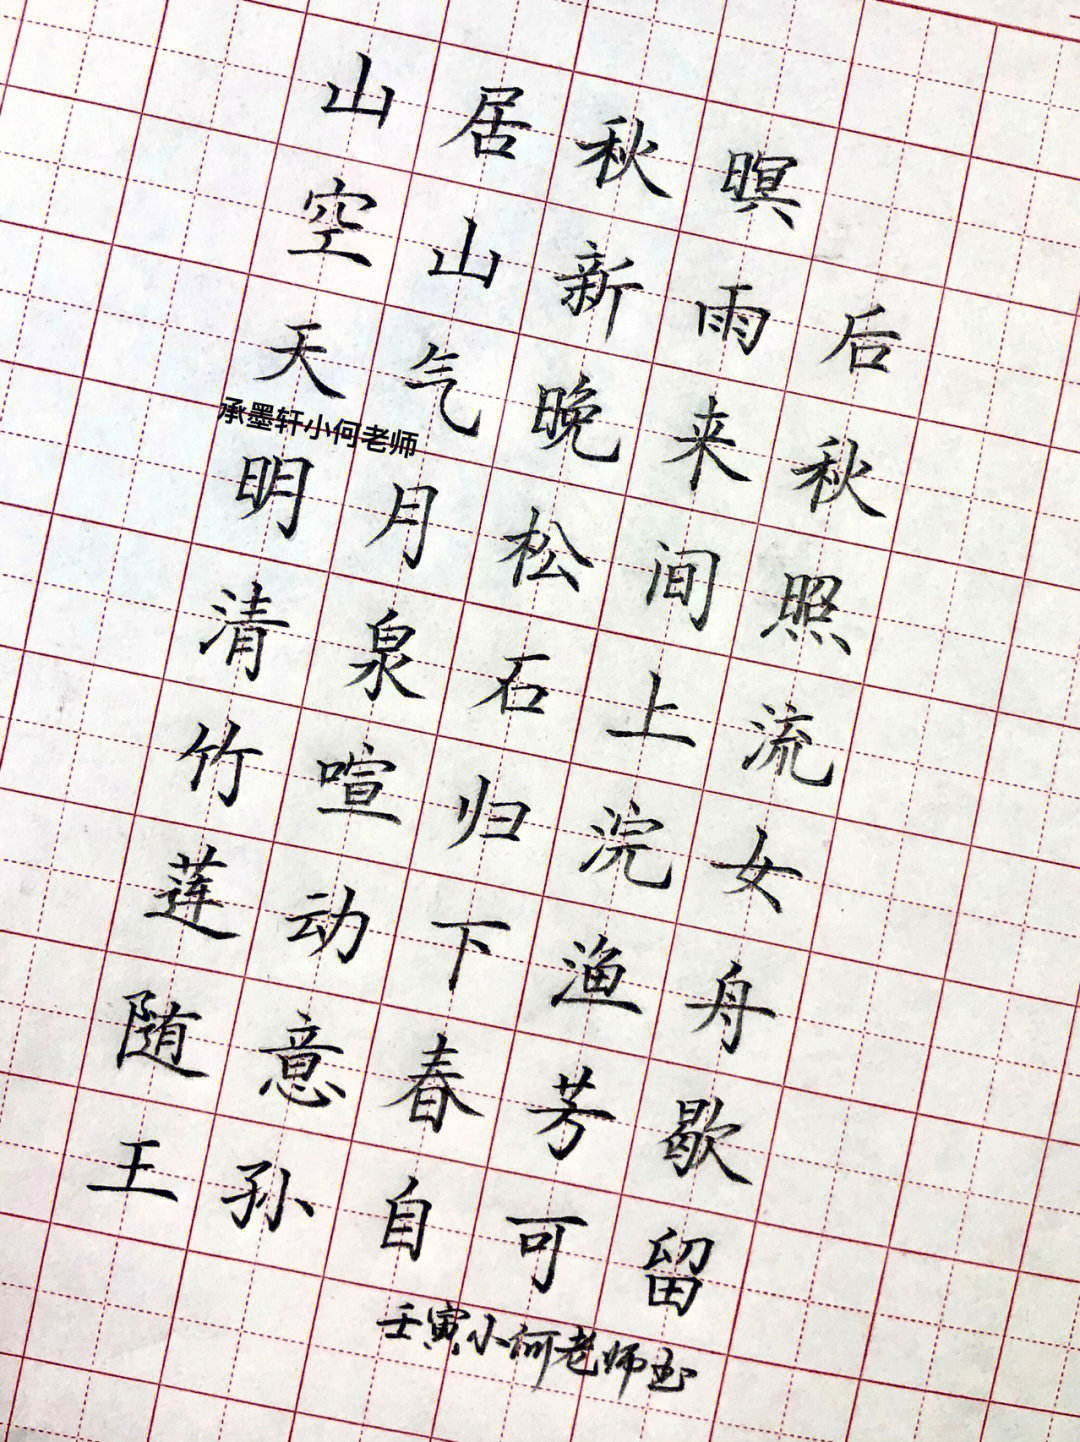 山居秋暝
空山新雨后
天气晚来秋
承墨轩小何老师
明月松间照
清泉石上流
竹喧归浣女
莲动下渔舟
随意春芳歇
王孙自可留
壬寅小何老师书